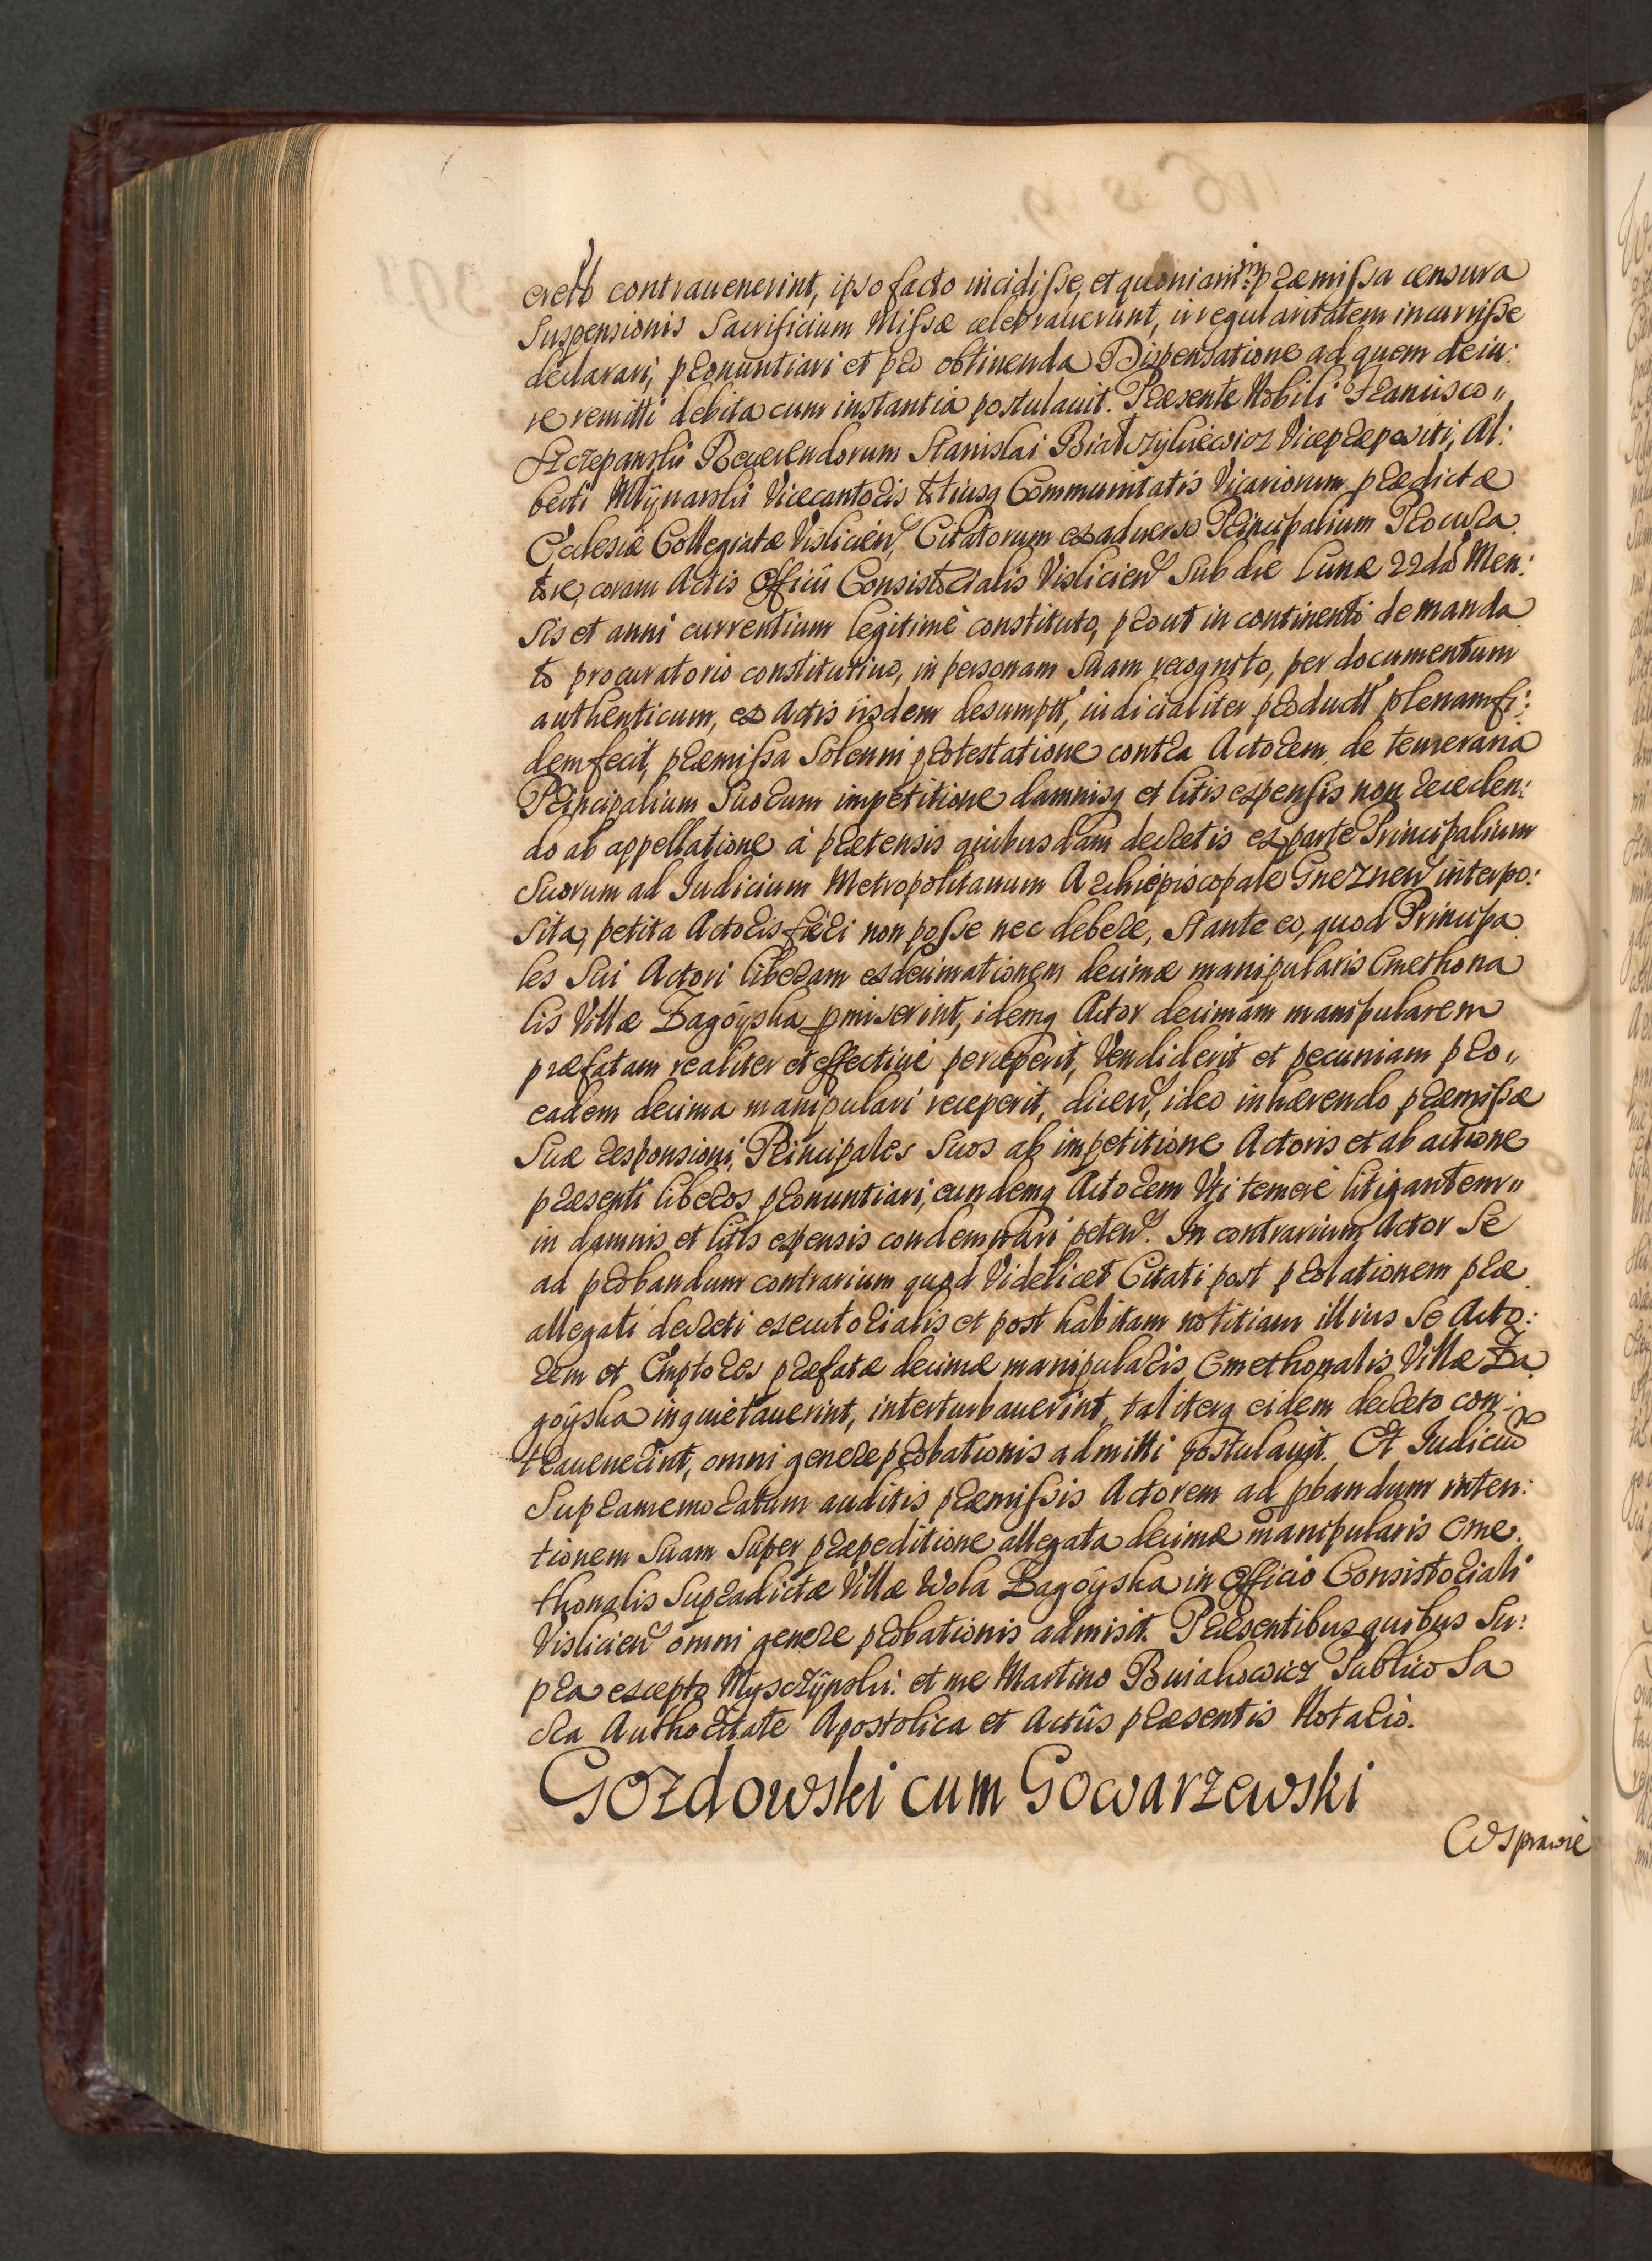 creto contrauenerint, ipso facto incidisse, et quoniam in præmissa censura
Suspensionis Sacrificium Missæ celebrauerunt, irregularitatem incurrisse
declarari, pronuntiari et pro obtinenda Dispensatione ad quem de iu:
re remitti debita cum instantia postulauit. Præsente Nobili Francisco "
Szczepanski Reuerendorum Stanislai Bialczylziewicz Vicepræpositi, Al:
berti Mlÿnarski Vicecantoris totiusq Communitatis Vicariorum prædictæ
Ecclesiæ Collegiatæ Vislicien, Citatorum ex aduerso Principalium Procura
tore, coram Actis Officii Consistorialis Vislicien Sub die Lunæ 22da Men:
sis et anni currentium legitime constituto, prout in continenti de manda
to procuratorio constitutiuo, in personam Suam recognito, per documentum
authenticum, ex Actis iisdem desumptt, iudicialiter productt plenam fi:
dem fecit, præmissa Solenni protestatione contra Actorem de temeraria
Principalium Suorum impetitione damnisq et litis expensis non receden:
do ab appellatione à prætensis quibusdam decretis ex parte Principalium
Suorum ad Iudicium Metropolitanum Archiepiscopale Gneznen interpo:
sita, petita Actoris fieri non posse nec debere, Stante eo, quod Principa
les Sui Actori liberam exdecimationem decimæ manipularis Cmethona
lis Villæ Zagoÿska pmiserint, idemq Actor decimam manipularem
præfatam realiter et effectiuè perceperit, Vendiderit et pecuniam pro "
eadem decima manipulari receperit, dicen, ideo inhærendo præmissæ
Suæ responsioni, Principales Suos ab impetitione Actoris et ab actione
præsenti liberos pronuntiari, eundemq Actorem Vti temerè litigantem "
in damnis et litis expensis condemnari peten. In contrarium Actor Se
ad probandum contrarium quod Videlicet Citati post prolationem præ
allegati decreti executorialis et post habitam notitiam illius Se Acto:
rem et Emptores præfatæ decimæ manipularis Cmethonalis Villæ Za
goÿska inquietauerint, interturbauerint, taliterq eidem decreto con:
trauenerint, omni genere probationis admitti postulauit. Et Iudiciu
Supramemoratum auditis præmissis Actorem ad pbandum inten:
tionem Suam Super præpeditione allegata decimæ manipularis Cme
thonalis Supradictæ Villæ Wola Zagoÿska in Officio Consistoriali
Vislicien omni genere probationis admisit. Præsentibus quibus Su:
pra excepto Mysczÿnski. et me Martino Buiakowicz Publico Sa
cra Authoritate Apostolica et Actûs præsentis Notariò.
Gozdowski cum Gowarzewski
W sprawie